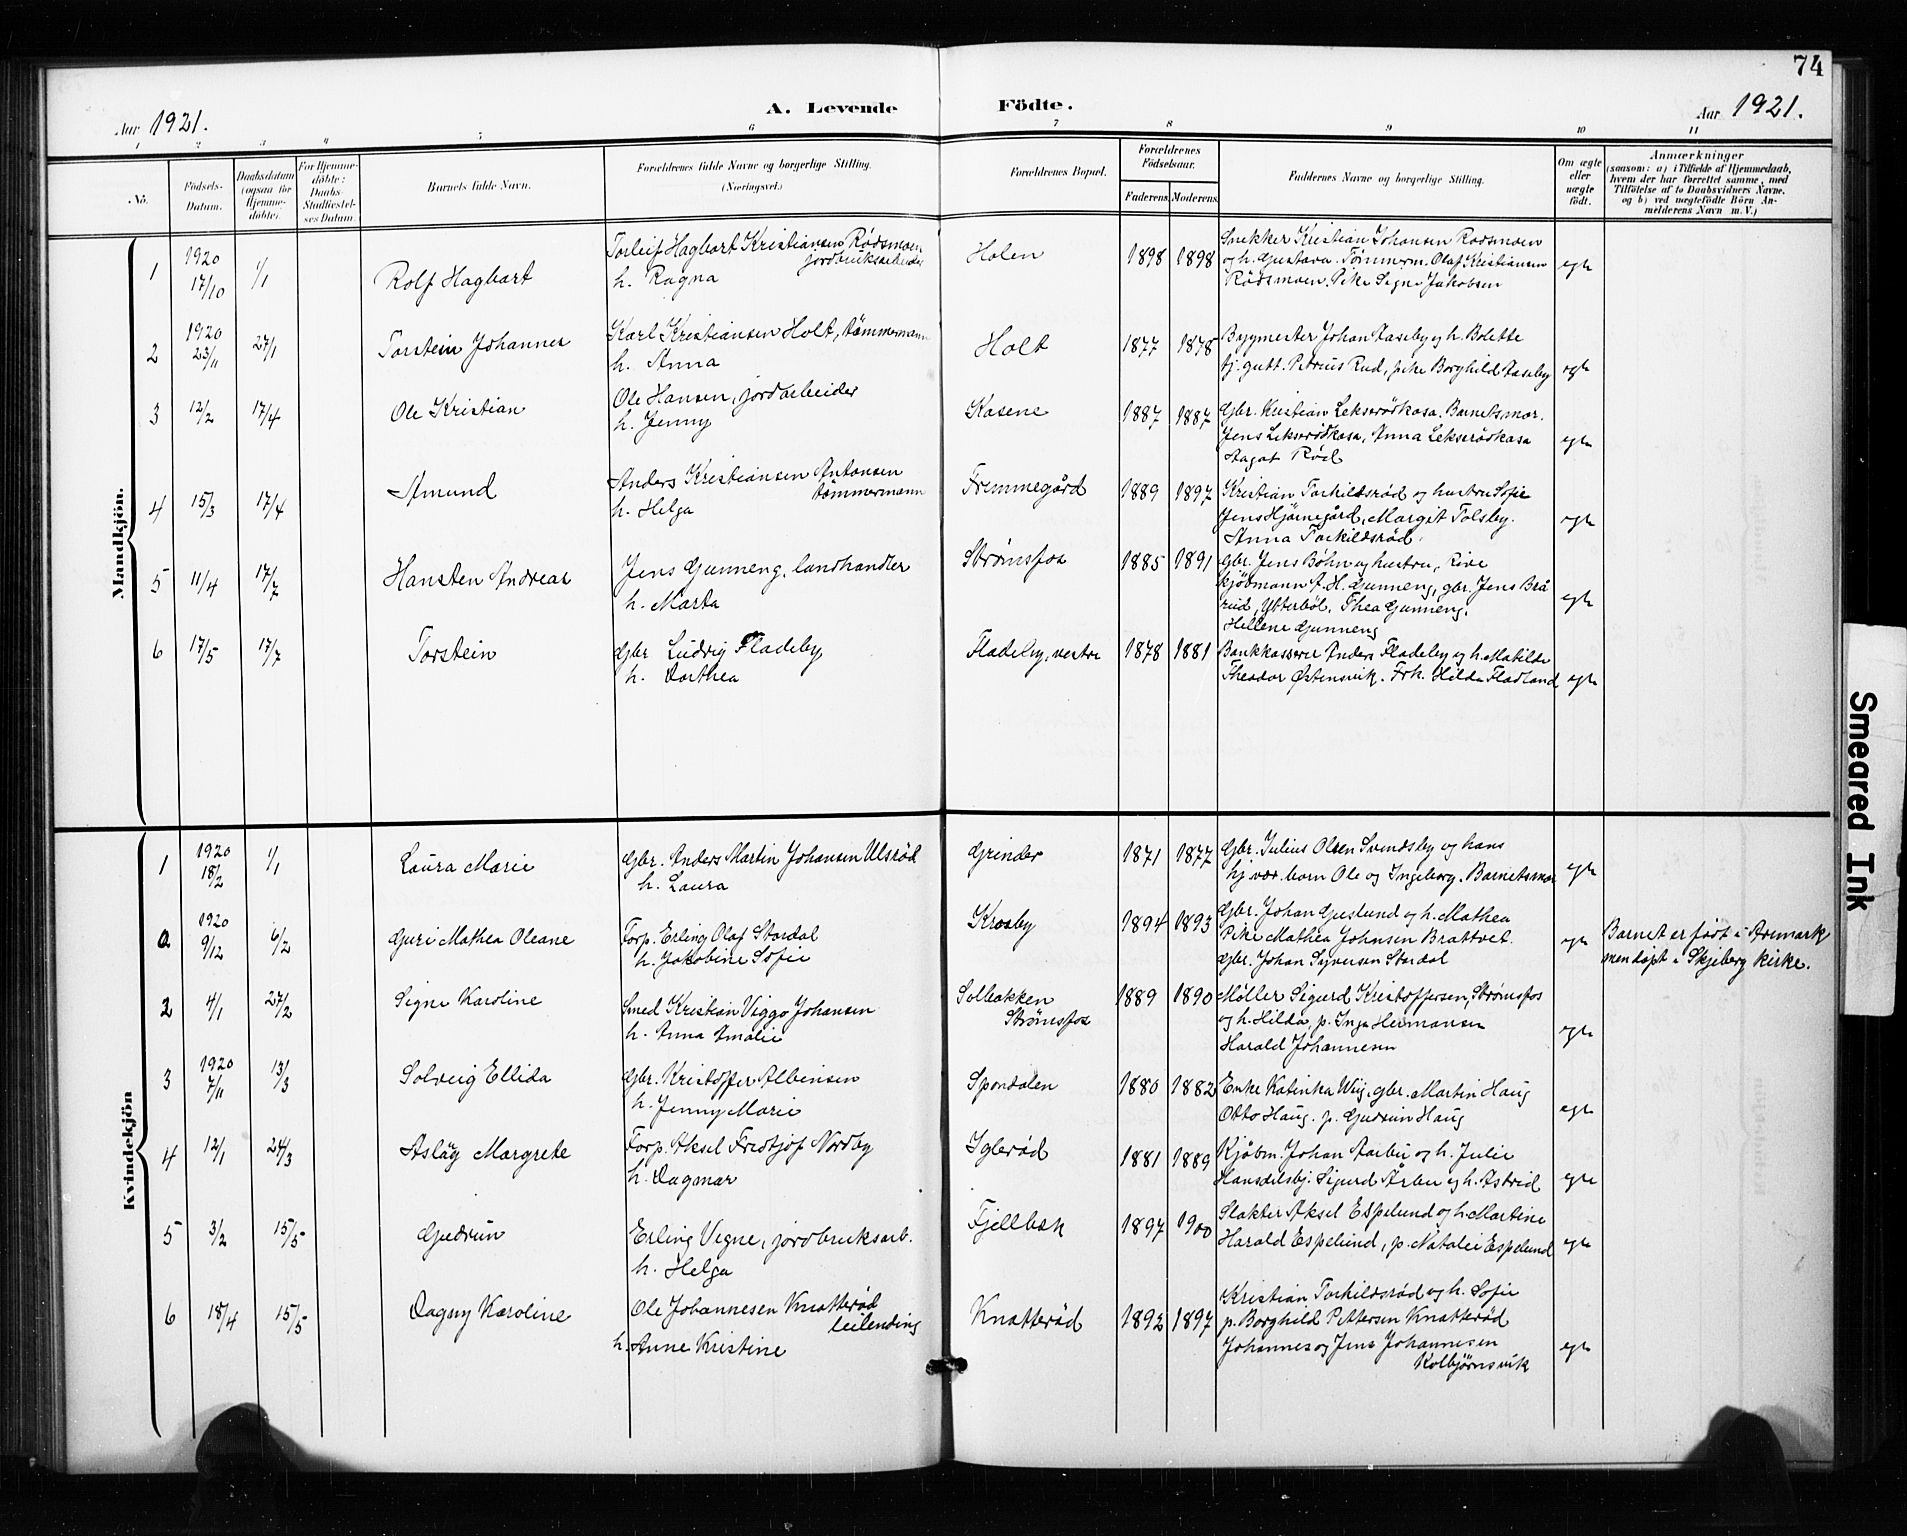 74
Aar 1921.
A. Levende Födte.
Aar 1921.
1 2 3 4 5 6 7 8 9 10 11
No.
Födsels-Datum.
Daabsdatum (ogsaa for Hjemmedöbte).
For Hjemmedöbte: Daabs Stadfæstelses Datum.
Barnets fulde Navn.
Forældrenes fulde Navne og borgerlige Stilling. (Næringsvei.)
Forældrenes Bopæl.
Forældrenes Födselsaar.
Faderens Moderens
Faddernes Navne og borgerlige Stilling.
Om ægte eller uægte födt.
Anmærkninger
(saasom: a) i Tilfælde af Hjemmedaab, hvem der har forrettet samme, med Tilföielse af to Daabsvidners Navne, og b) ved uægtefödte Börn Anmelderens Navn m. V.)
Mandkjön.
1 1920 17/10 1/1 Rolf Hagbart
Torleif Hagbart Kristiansen Rødsmoen jordbruksarbeider
h. Ragna
Holen 1898 1898
Snekker Kristian Johansen Rødsmoen
og h. Gustava. Tømmerm. Olaf Kristiansen
Rødsmoen. Pike Signe Jakobsen
egte
2 1920 23/11 27/1 Torstein Johannes
Karl Kristiansen Holt, tømmermann
h. Anna
Holt 1877 1878
Bygmester Johan Aaseby og h. Bolette
tj. gutt. Petrius Rud, pike Borghild Aaseby
egte
3 12/2 17/4 Ole Kristian
Ole Hansen, jordarbeider
h. Jenny
Kasene 1887 1887
Gbr. Kristian Lekserødkasa. Barnets mor.
Jens Lekserødkasa, Anna Lekserødkasa
Aagot Rød
egte
4 15/3 17/4 Amund
Anders Kristiansen Antonsen tømmermann
h. Helga
Fremmegård 1889 1897
Kristian Torkildsrød og hustru Sofie
Jens Hjørnegård, Margit Tolsby.
Anna Torkildsrød.
egte
5 11/4 17/7 Hansten Andreas
Jens Gunneng, landhandler
h. Marta
Strømsfos 1885 1891
Gbr. Jens Bøhn og hustru, Rive
kjøbmann A. H. Gunneng, gbr. Jens Brå
rud, Ytterbøl. Thea Gunneng.
Hellene Gunneng
egte
6 17/5 17/7 Torstein
Gbr Ludvig Fladeby
h. Dorthea
Fladeby, vestre 1878 1881
Bankkasserer Anders Fladeby og h. Matilde
Theodor Østensvik. Frk. Hilda Fladland
egte
Kvindekjön
1 1920 18/2 1/1 Laura Marie
Gbr. Anders Martin Johansen Ulsrød
h. Laura
Grinder 1871 1877
Gbr. Julius Olsen Svendsby og hans
hj. vær. barn Ole og Ingeborg. Barnets mor
egte
a 1920 9/12 6/2 Guri Mathea Oleane
Forp. Erling Olaf Stordal
h. Jakobine Sofie
Krosby 1894 1893
Gbr. Johan Guslund og h. Mathea
Pike Mathea Johnsen Brattvet.
Gbr. Johan Syversen Stordal
egte
Barnet er født i Aremark
men døpt i Skjeberg kirke.
2 4/1 27/2 Signe Karoline
Smed Kristian Viggo Johansen
h. Anna Amalie
Solbakken
Strømsfos
1889 1890
Møller Sigurd Kristoffersen, Strømsfos
og h. Hilda, p. Inga Hermansen
Harald Johannesen
egte
3 1920 7/11 13/3 Solveig Ellida
Gbr. Kristoffer Albinsen
h. Jenny Marie
Spondalen 1880 1882
Enke Katinka Wiig, gbr. Martin Haug
Otto Haug. p. Gudrun Haug
egte
4 12/1 24/3 Aslaug Margrete
Forp. Aksel Fredtjof Nordby
h. Dagmar
Iglerød 1881 1889
Kjøbm. Johan Aarbu og h. Julie
Handelsbj. Sigurd Årbu og h. Astrid
egte
5 3/2 15/5 Gudrun
Erling Vigne, jordbruksarb.
h. Helga
Fjellbæk 1897 1900
Slakter Aksel Espelund og h. Martine
Harald Espelund, p. Natalie Espelund
egte
6 18/4 15/5 Dagny Karoline
Ole Johannesen Knatterød
leilending
h. Anne Kristine
Knatterød 1892 1897
Kristian Torkildsrød og h. Sofie
p. Borghild Pettersen Knatterød
Johannes og Jens Johannesen
Kolbjørnsvik
egte
Smeared Ink